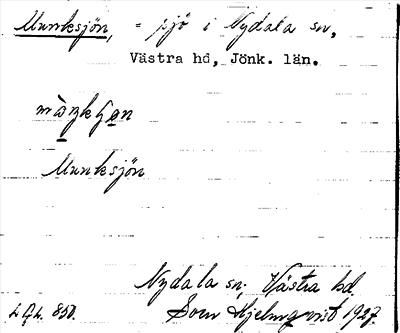 Munksjön, = sjö i Nydala sn,
Västra hd, Jönk. län.
Munksjön
Nydala sn; Västra hd.
Sven Hjelmqvist 1927